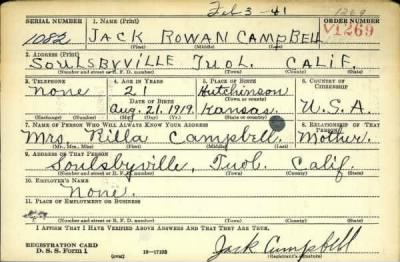 Feb 3-41
1269
SERIAL NUMBER 1. NAME (Print) ORDER NUMBER
1082 JACK ROWAN CAMPBELL V1269
(First) (Middle) (Last)
2. ADDRESS (Print)
SOULSBYVILLE TUOL. CALIF.
(Number and street or R. F. D. number) (Town) (County) (State)
3. TELEPHONE 4. AGE IN YEARS 5. PLACE OF BIRTH 6. COUNTRY OF CITIZENSHIP
None 21 Hutchinson
DATE OF BIRTH (Town or county)
Aug. 21, 1919. Kansas. U.S.A.
(Exchange) (Number) (Mo.) (Day) (Yr.) (State or country)
7. NAME OF PERSON WHO WILL ALWAYS KNOW YOUR ADDRESS 8. RELATIONSHIP OF THAT PERSON
Mrs Rilla Campbell Mother.
(Mr., Mrs., Miss) (First) (Middle) (Last)
9. ADDRESS OF THAT PERSON
Soulsbyville, Tuol. Calif.
(Number and street or R. F. D. number) (Town) (County) (State)
10. EMPLOYER'S NAME
None.
11. PLACE OF EMPLOYMENT OR BUSINESS
(Number and street or R. F. D. number) (Town) (County) (State)
I AFFIRM THAT I HAVE VERIFIED ABOVE ANSWERS AND THAT THEY ARE TRUE.
REGISTRATION CARD
D. S. S. Form 1 16-17105 Jack Campbell
(Registrant's signature)